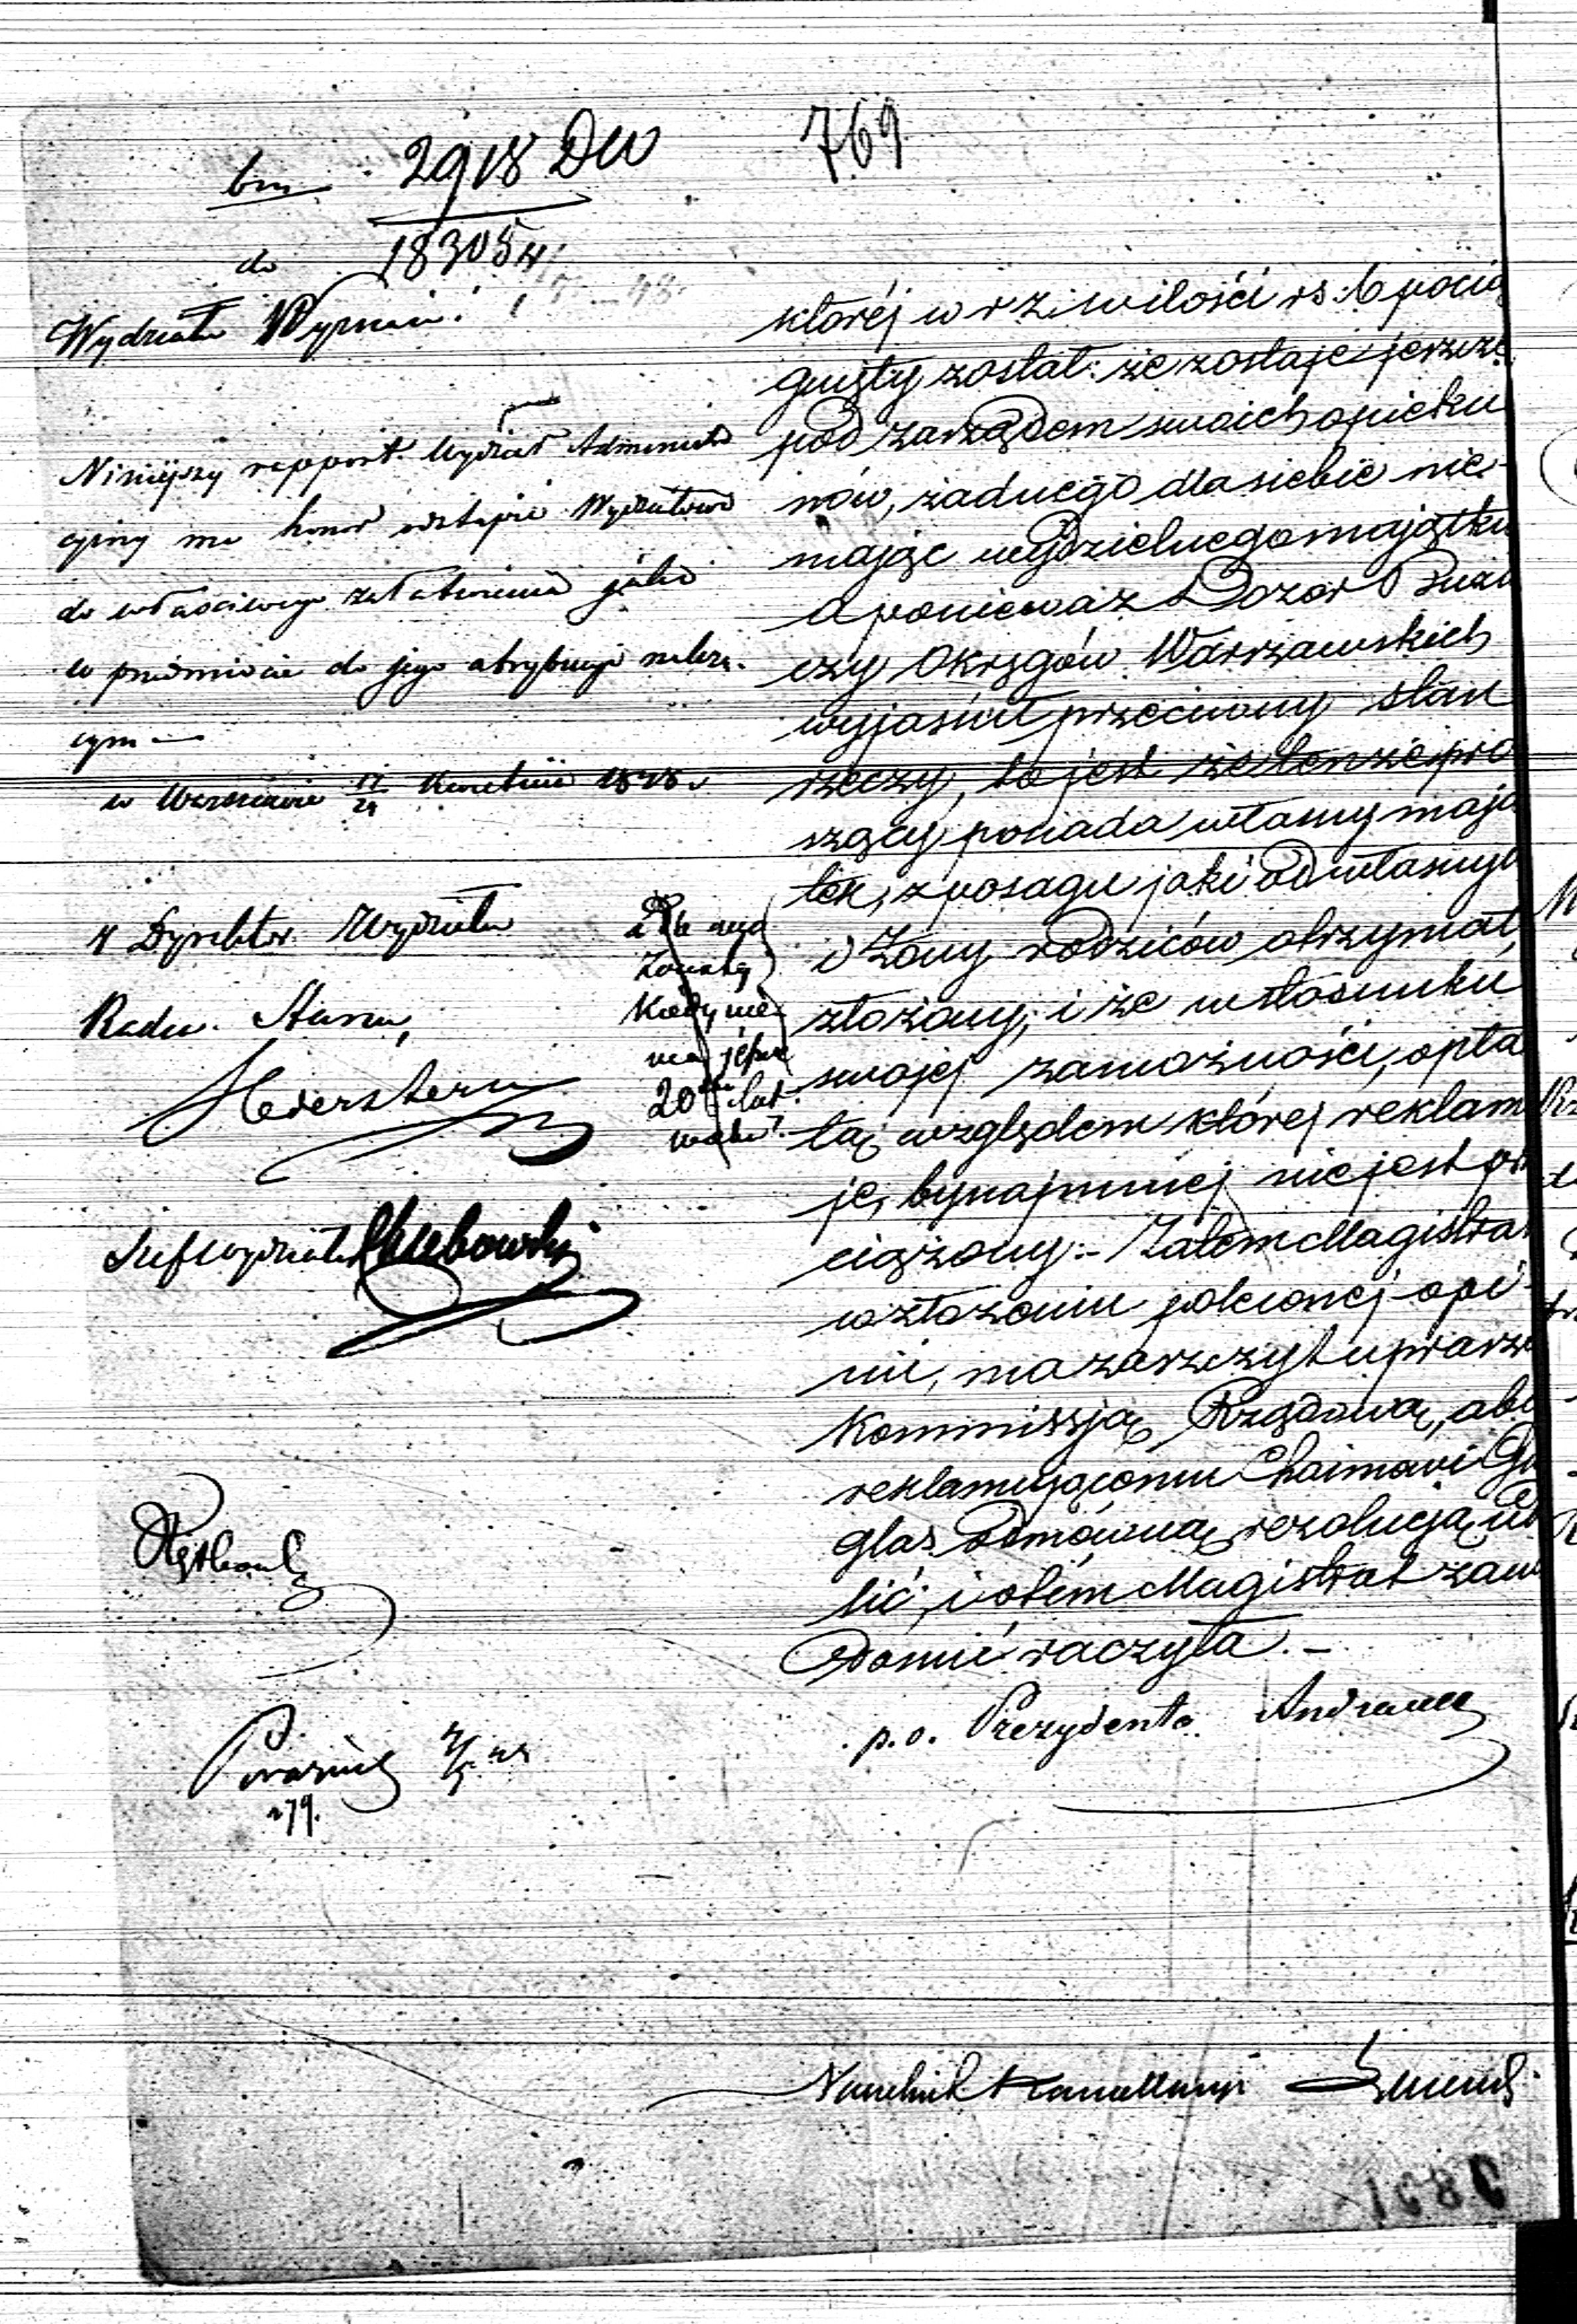 769
2918 DW
do 18305
Wydziału Wyznań.
Niniejszy rapport Wydział Administra
cyjny ma honor odstąpić Wydziałowi
do właściwego załatwienia jako
w przedmiocie do jego atrybucyi należą-
cym —
w Warszawie 17/29 Kwietnia 1848 r
Dyrektor Wydziału
Radca Stanu,
Hederstern
Szef Wydziału
279.
żonaty
kiedy nie
ma jeszcze
20 lat
wieku?
której w r. z. w ilości rs. 6 pocią
gnięty został: że zostaje jeszcze
pod zarządem swoich opieku
nów, żadnego dla siebie nie-
mając wydzielnego majątku
a ponieważ Dozór Bużni
czy Okręgów Warszawskich
wyjaśnił przeciwny stan
rzeczy, to jest że tenże pro
szący posiada własny mają
tek, z posagu jaki od własnych
i Żony rodziców otrzymał,
złożony; i że w stosunku
swojej zamożności, opła
tą względem której reklamu
je, bynajmniej nie jest prze
ciążony.- Zatem Magistrat
w złożeniu poleconej opi-
nii, ma zaszczyt upraszać
Kommissją Rządową, aby
reklamującemu Chaimowi
glas Odmówną rezolucją
lić, i o tém Magistrat zawia
domić raczyła.-
p.o. Prezydenta Andrault
Naczelnik Kancellaryi